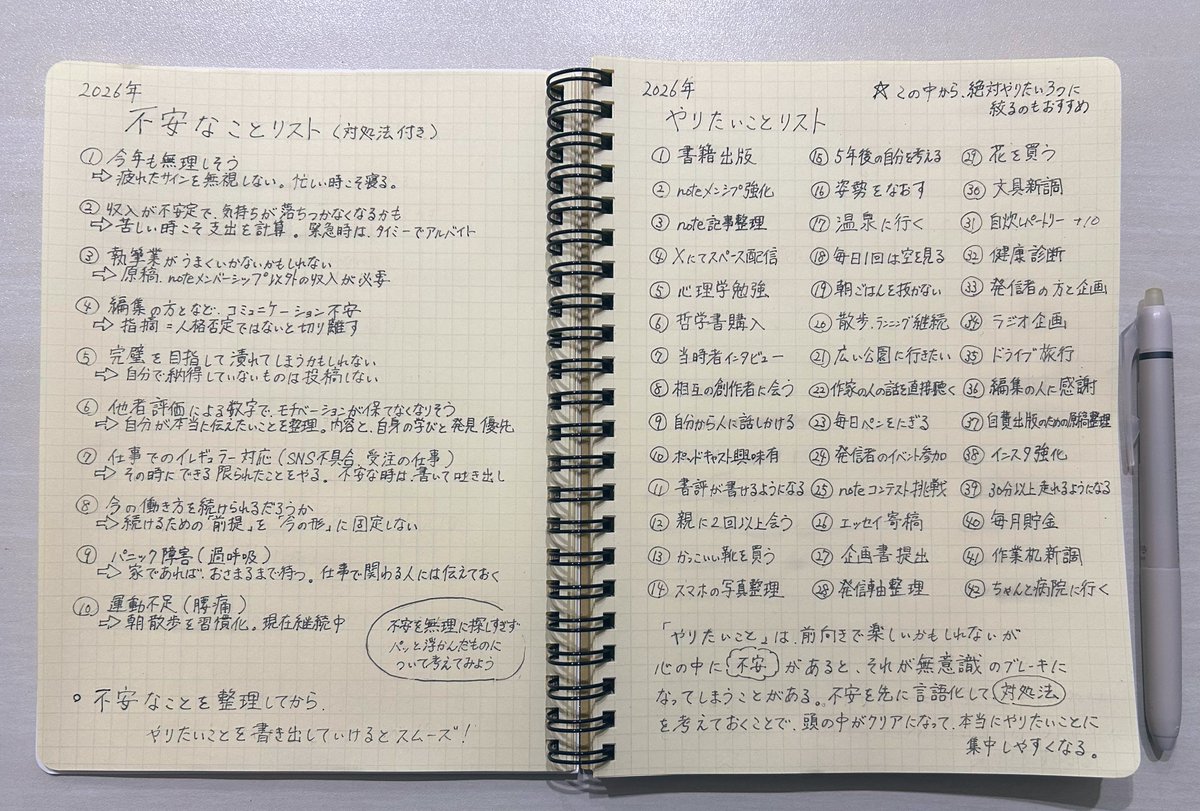 2026年
不安なことリスト(対処法付き)
① 今年も無理しそう
⇨ 疲れたサインを無視しない。忙しい時こそ寝る。
② 収入が不安定で、気持ちが落ちつかなくなるかも
⇨ 苦しい時こそ支出を計算。緊急時は、タイミーでアルバイト
③ 執筆業がうまくいかないかもしれない
⇨ 原稿、noteメンバーシップ以外の収入が必要
④ 編集の方となど、コミュニケーション不安
⇨ 指摘=人格否定ではないと切り離す
⑤ 完璧を目指して潰れてしまうかもしれない
⇨ 自分で納得していないものは投稿しない
⑥ 他者評価による数字で、モチベーションが保てなくなりそう
⇨ 自分が本当に伝えたいことを整理。内容と、自身の学びと発見優先
⑦ 仕事でのイレギュラー対応(SNS不具合、受注の仕事)
⇨ その時にできる限られたことをやる。不安な時は、書いて吐き出し
⑧ 今の働き方を続けられるだろうか
⇨ 続けるための「前提」を「今の形」に固定しない
⑨ パニック障害(過呼吸)
⇨ 家であれば、おさまるまで待つ。仕事で関わる人には伝えておく
⑩ 運動不足(腰痛)
⇨ 朝散歩を習慣化。現在継続中
不安を無理に探しすぎず
パッと浮かんだものに
ついて考えてみよう
○ 不安なことを整理してから、
やりたいことを書き出していけるとスムーズ!
2026年
☆ この中から、絶対やりたい3つに
絞るのもおすすめ
やりたいことリスト
① 書籍出版
② noteメンシプ強化
③ note記事整理
④ Xにてスペース配信
⑤ 心理学勉強
⑥ 哲学書購入
⑦ 当時者インタビュー
⑧ 相互の創作者に会う
⑨ 自分から人に話しかける
⑩ ポッドキャスト興味有
⑪ 書評が書けるようになる
⑫ 親に2回以上会う
⑬ かっこいい靴を買う
⑭ スマホの写真整理
⑮ 5年後の自分を考える
⑯ 姿勢をなおす
⑰ 温泉に行く
⑱ 毎日1回は空を見る
⑲ 朝ごはんを抜かない
⑳ 散歩、ランニング継続
㉑ 広い公園に行きたい
㉒ 作家の人の話を直接聴く
㉓ 毎日ペンをにぎる
㉔ 発信者のイベント参加
㉕ noteコンテスト挑戦
㉖ エッセイ寄稿
㉗ 企画書提出
㉘ 発信軸整理
㉙ 花を買う
㉚ 文具新調
㉛ 自炊レパートリー +10
㉜ 健康診断
㉝ 発信者の方と企画
㉞ ラジオ企画
㉟ ドライブ旅行
㊱ 編集の人に感謝
㊲ 自費出版のための原稿整理
㊳ インスタ強化
㊴ 30分以上走れるようになる
㊵ 毎月貯金
㊶ 作業机新調
㊷ ちゃんと病院に行く
「やりたいこと」は、前向きで楽しいかもしれないが
心の中に不安があると、それが無意識のブレーキに
なってしまうことがある。不安を先に言語化して対処法
を考えておくことで、頭の中がクリアになって、本当にやりたいことに
集中しやすくなる。